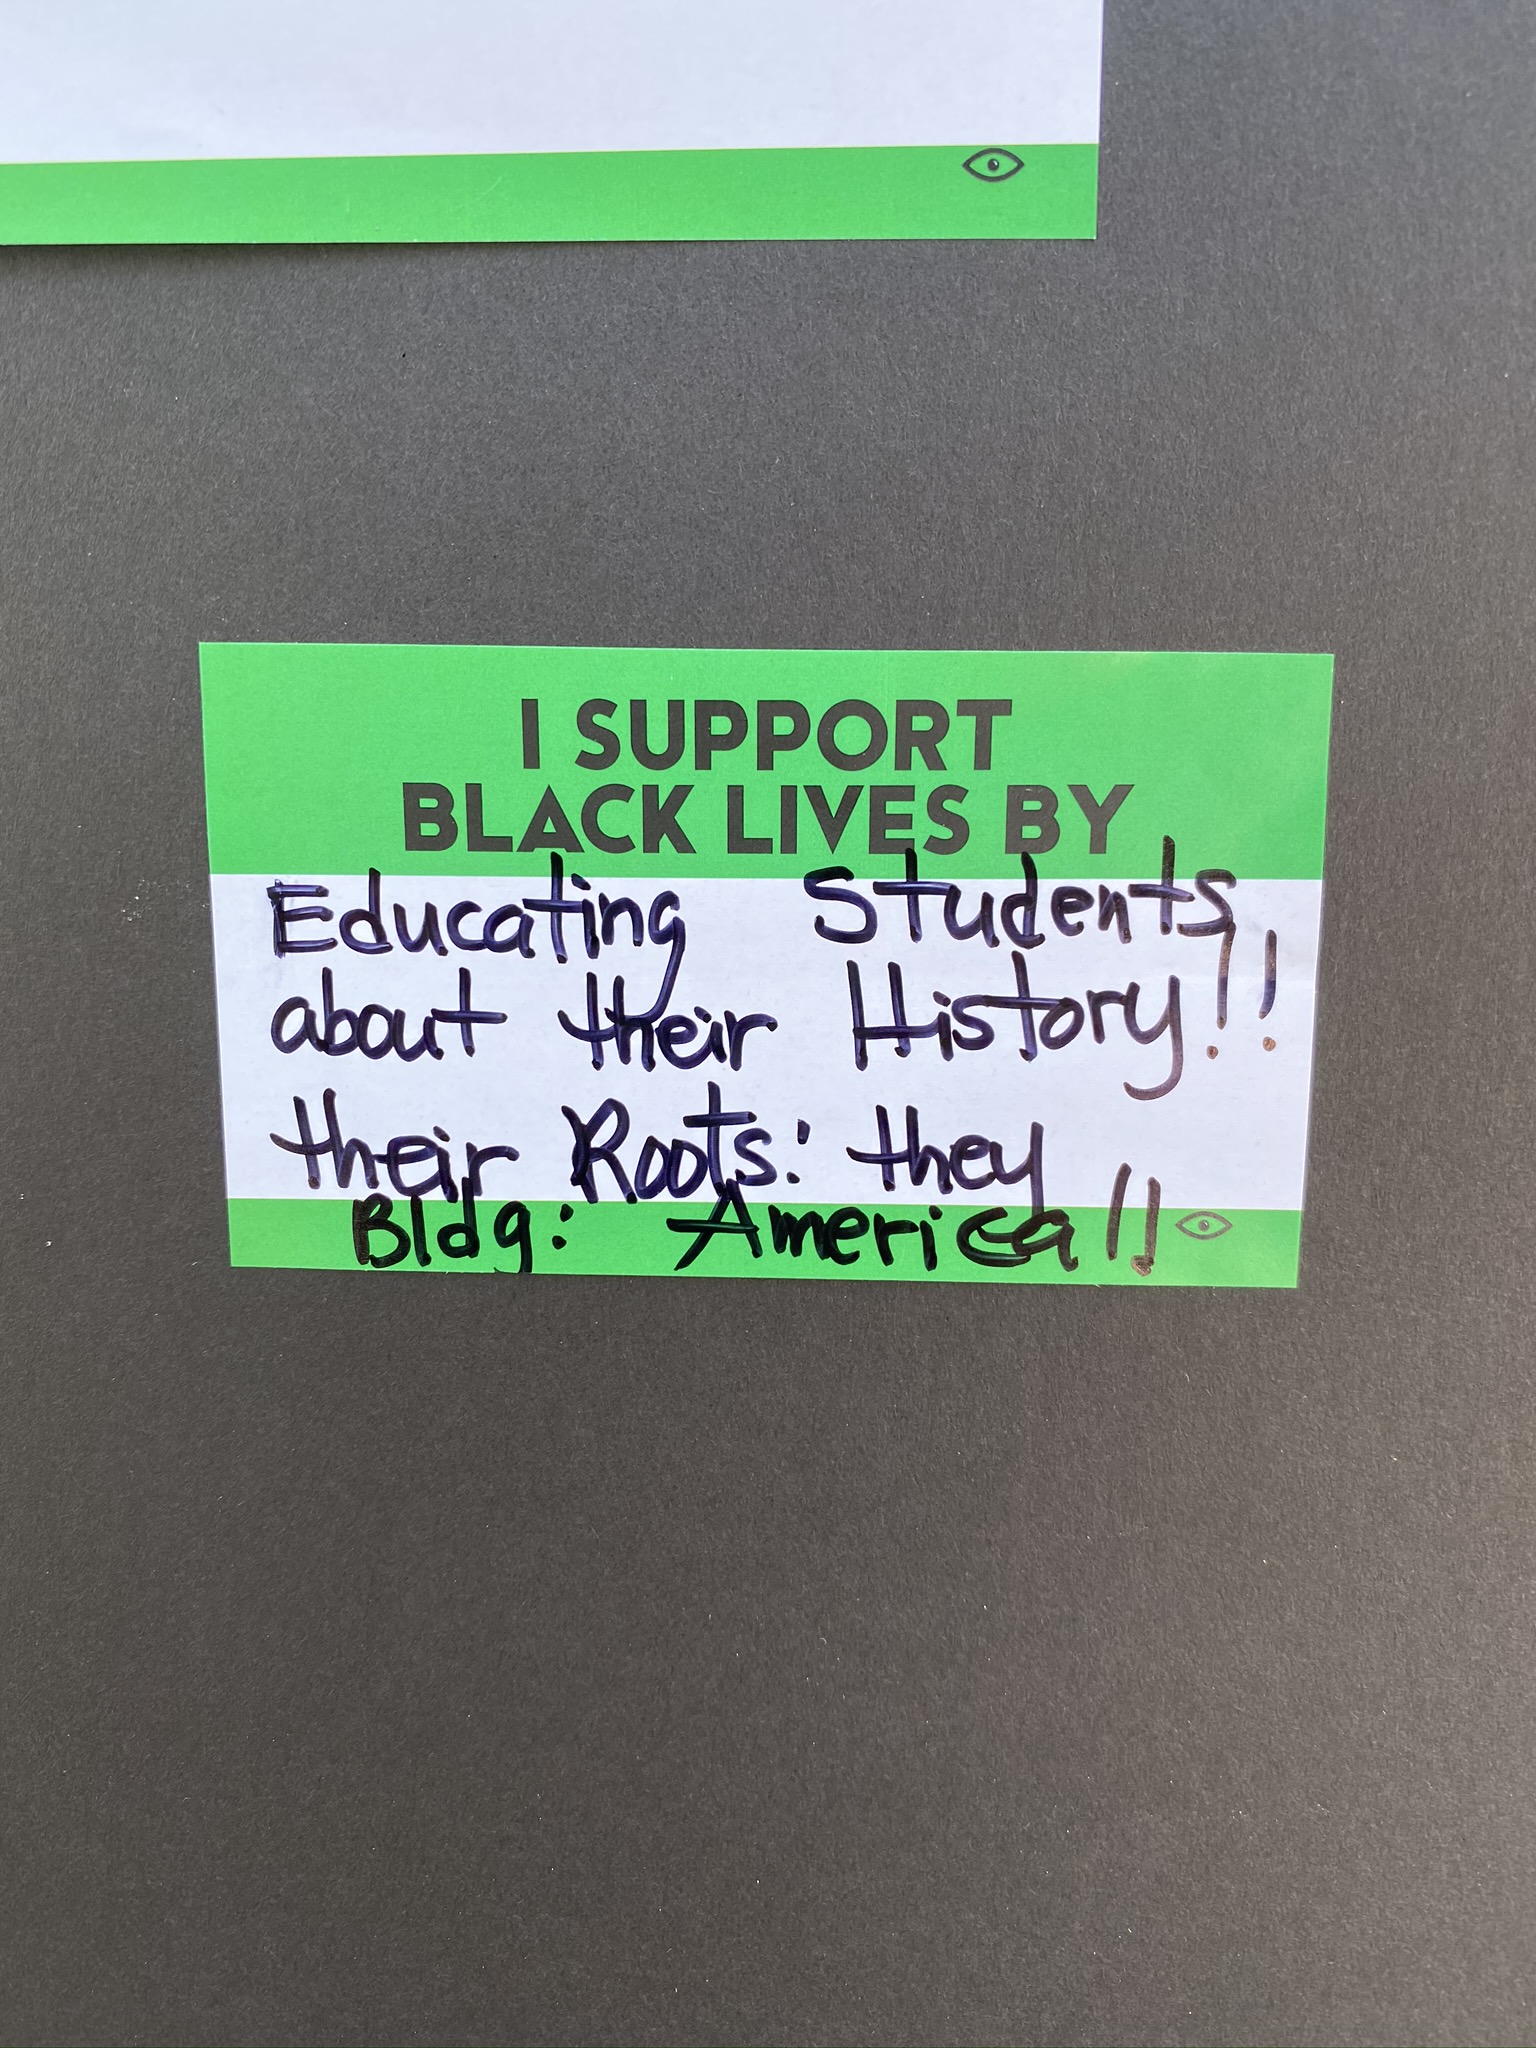 I SUPPORT
BLACK LIVES BY
Educating Students
about their History!!
their Roots: they
Bldg: America!!